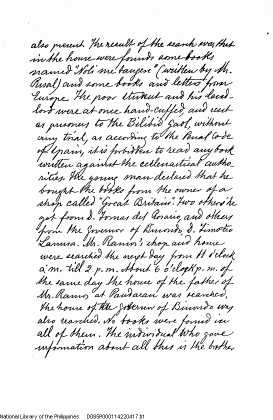 also present. The result of the search was that
in the house were found some books
named "Noli me tangere" (written by Mr.
Rizal) and some books and letters from
Europe. The poor student and his land-
lord were at once hand-cuffed and sent
as prisoners to the Bilibid gaol, without
any trial, as according to the Penal Code
of Spain, it is forbidden to read any book
written against the ecclesiastical autho-
rities. The young man declared that he
bought the books from the owner of a
shop called "Great Britain". Two others he
got from D. Tomas del Rosario and others
from the Governor of Binondo D. Timoteo
Lanuza. Mr. Ramos's shop and home
were searched the next day from 11 o'clock
a.m. till 2 p.m. About 6 o'clock p.m. of
the same day the house of the father of
Mr. Ramos at Pandacan was searched,
the house of the Governor of Binondo was
also searched. No book were found in
all of them. The individual who gave
information about all this is the brother
National Library of the Philippines